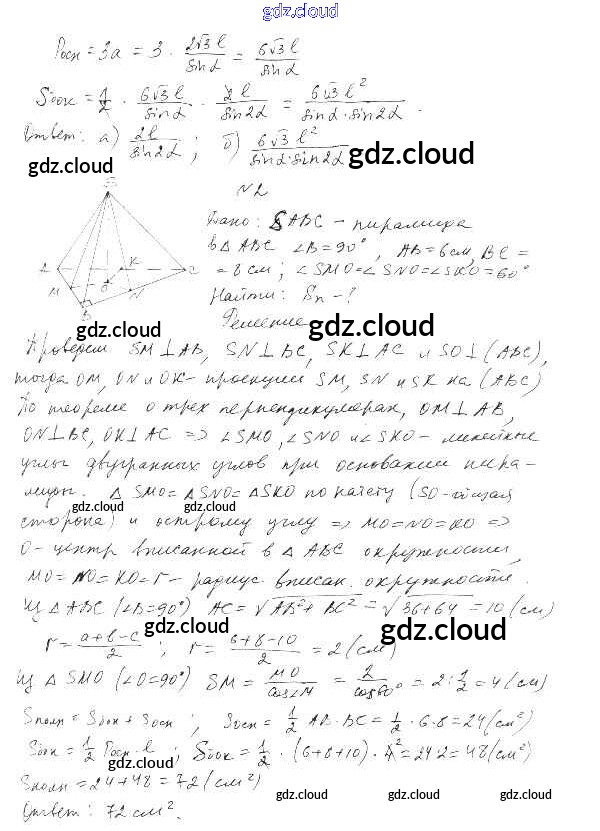 gdz.cloud
Pосн = 3a = 3 · 2√3 l / sin α = 6√3 l / sin α
Sбок = 1/2 · 6√3 l / sin α · 2l / sin 2α = 6√3 l² / sin α · sin 2α .
Ответ: а) 2l / sin 2α ; б) 6√3 l² / sin α · sin 2α
gdz.cloud gdz.cloud
N2
S A K C M O N B
Дано: SABC – пирамида
в Δ ABC ∠B = 90°, AB = 6 см, BC =
= 8 см; ∠SMO = ∠SNO = ∠SKO = 60°
Найти: Sп – ?
gdz.cloud Решение gdz.cloud
Проведем SM ⊥ AB, SN ⊥ BC, SK ⊥ AC и SO ⊥ (ABC),
тогда OM, ON и OK – проекции SM, SN и SK на (ABC)
По теореме о трех перпендикулярах, OM ⊥ AB,
ON ⊥ BC, OK ⊥ AC => ∠SMO, ∠SNO и ∠SKO – линейные
углы двугранных углов при основании пира-
миды. Δ SMO = Δ SNO = Δ SKO по катету (SO – общая
gdz.cloud gdz.cloud
сторона) и острому углу => MO = NO = KO =>
O – центр вписанной в Δ ABC окружности,
MO = NO = KO = r – радиус вписан. окружности.
Из Δ ABC (∠B = 90°) AC = √AB² + BC² = √36 + 64 = 10 (см)
gdz.cloud gdz.cloud
r = a + b – c / 2 ; r = 6 + 8 – 10 / 2 = 2 (см)
Из Δ SMO (∠O = 90°) SM = MO / cos∠M = 2 / cos 60° = 2 : 1/2 = 4 (см)
Sполн = Sбок + Sосн ; Sосн = 1/2 AB · BC = 1/2 · 6 · 8 = 24 (см²)
Sбок = 1/2 Pосн · l ; Sбок = 1/2 · (6 + 8 + 10) · 4 ² = 24 · 2 = 48 (см²)
gdz.cloud gdz.cloud
Sполн = 24 + 48 = 72 (см²)
Ответ: 72 см².
gdz.cloud gdz.cloud gdz.cloud